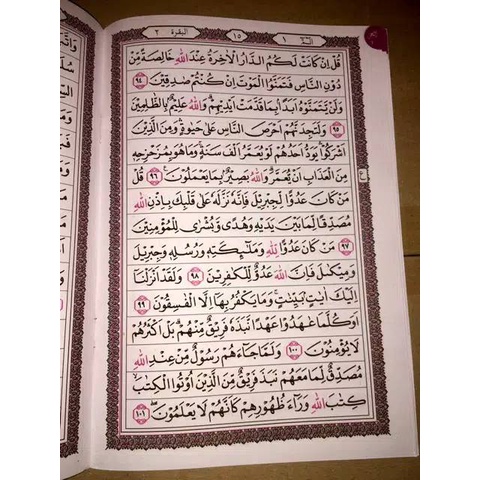 البقرة ٢
١٥
الٓمّٓ ١
قُلْ اِنْ كَانَتْ لَكُمُ الدَّارُ الْاٰخِرَةُ عِنْدَ اللّٰهِ خَالِصَةً مِّنْ
دُوْنِ النَّاسِ فَتَمَنَّوُا الْمَوْتَ اِنْ كُنْتُمْ صٰدِقِيْنَ ٩٤
وَلَنْ يَّتَمَنَّوْهُ اَبَدًاۢ بِمَا قَدَّمَتْ اَيْدِيْهِمْ ؕ وَاللّٰهُ عَلِيْمٌۢ بِالظّٰلِمِيْنَ
٩٥ وَلَتَجِدَنَّهُمْ اَحْرَصَ النَّاسِ عَلٰى حَيٰوةٍ ۛ وَمِنَ الَّذِيْنَ
اَشْرَكُوْا ۛ يَوَدُّ اَحَدُهُمْ لَوْ يُعَمَّرُ اَلْفَ سَنَةٍ ۚ وَمَا هُوَ بِمُزَحْزِحِهٖ
مِنَ الْعَذَابِ اَنْ يُّعَمَّرَ ؕ وَاللّٰهُ بَصِيْرٌۢ بِمَا يَعْمَلُوْنَ ٩٦ قُلْ
مَنْ كَانَ عَدُوًّا لِّجِبْرِيْلَ فَاِنَّهٗ نَزَّلَهٗ عَلٰى قَلْبِكَ بِاِذْنِ اللّٰهِ
مُصَدِّقًا لِّمَا بَيْنَ يَدَيْهِ وَهُدًى وَّبُشْرٰى لِلْمُؤْمِنِيْنَ
٩٧ مَنْ كَانَ عَدُوًّا لِّلّٰهِ وَمَلٰٓئِكَتِهٖ وَرُسُلِهٖ وَجِبْرِيْلَ
وَمِيْكٰىلَ فَاِنَّ اللّٰهَ عَدُوٌّ لِّلْكٰفِرِيْنَ ٩٨ وَلَقَدْ اَنْزَلْنَاۤ
اِلَيْكَ اٰيٰتٍۢ بَيِّنٰتٍ ۚ وَمَا يَكْفُرُ بِهَاۤ اِلَّا الْفٰسِقُوْنَ ٩٩
اَوَكُلَّمَا عٰهَدُوْا عَهْدًا نَّبَذَهٗ فَرِيْقٌ مِّنْهُمْ ؕ بَلْ اَكْثَرُهُمْ
لَا يُؤْمِنُوْنَ ١٠٠ وَلَمَّا جَآءَهُمْ رَسُوْلٌ مِّنْ عِنْدِ اللّٰهِ
مُصَدِّقٌ لِّمَا مَعَهُمْ نَبَذَ فَرِيْقٌ مِّنَ الَّذِيْنَ اُوْتُوا الْكِتٰبَ ۙ
كِتٰبَ اللّٰهِ وَرَآءَ ظُهُوْرِهِمْ كَاَنَّهُمْ لَا يَعْلَمُوْنَ ١٠١